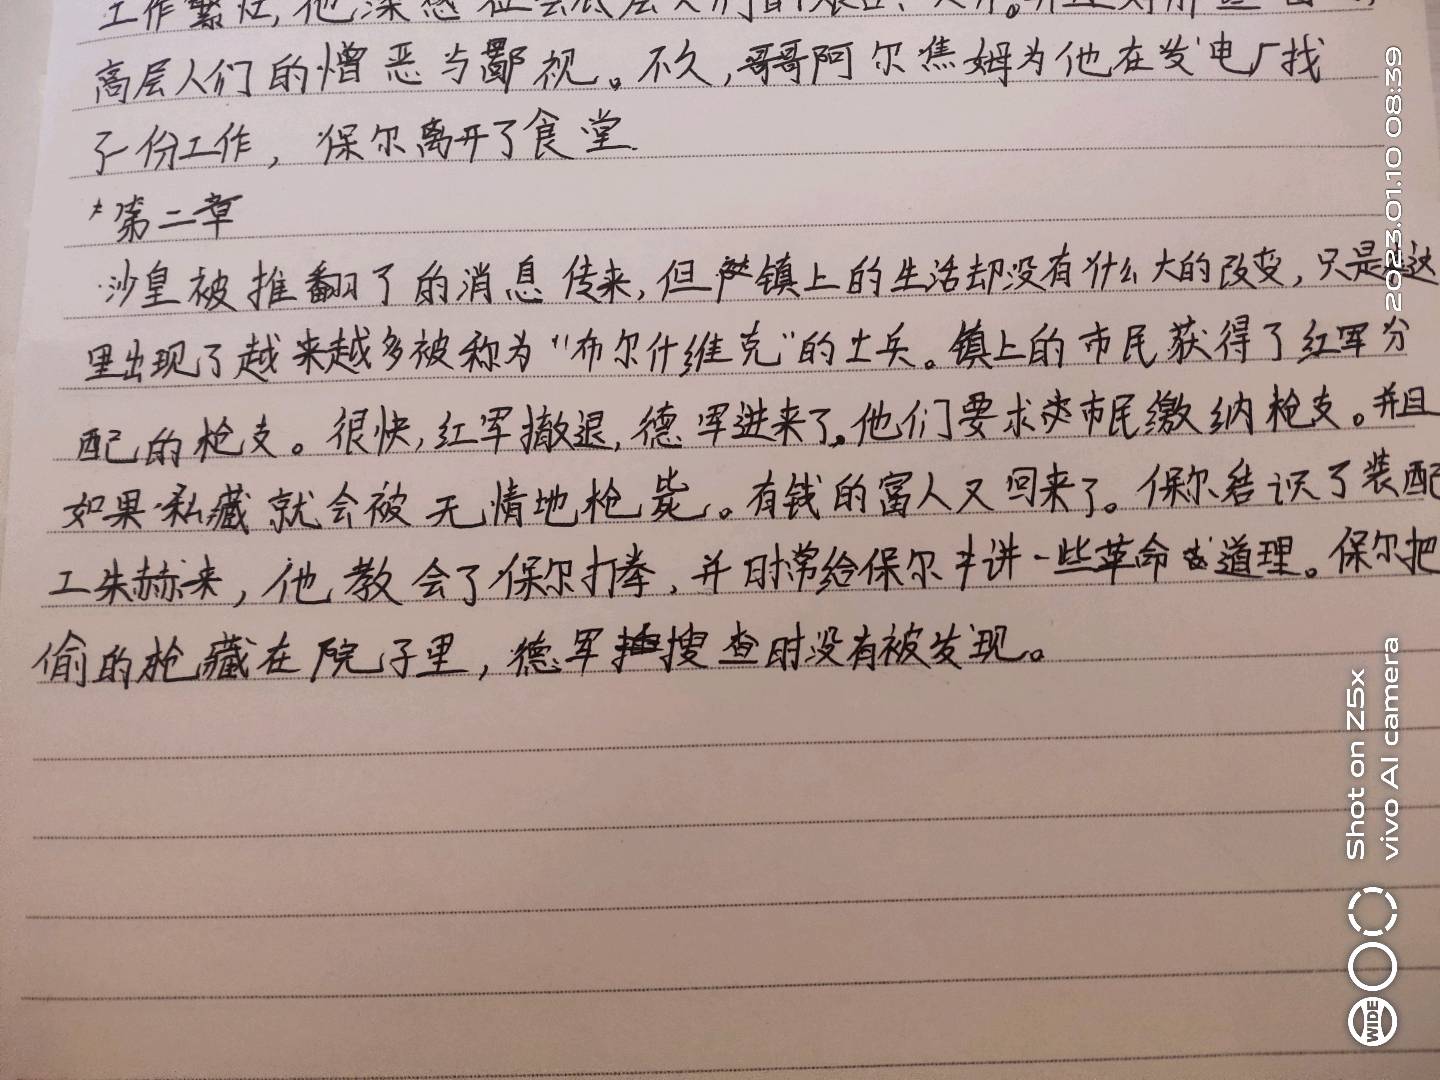 工作繁忙,他深感社会底层人们的
高层人们的憎恶与鄙视。不久,哥哥阿尔焦姆为他在发电厂找
了一份工作,保尔离开了食堂.
*第二章
沙皇被推翻了的消息传来,但镇上的生活却没有什么大的改变,只是这
里出现了越来越多被称为“布尔什维克”的士兵。镇上的市民获得了红军分
配的枪支。很快,红军撤退,德军进来了。他们要求市民缴纳枪支。并且
如果私藏就会被无情地枪毙。有钱的富人又回来了。保尔结识了装配
工朱赫来,他教会了保尔打拳,并时常给保尔讲一些革命道理。保尔把
偷的枪藏在院子里,德军搜查时没有被发现。
2023.01.10 08:39
Shot on Z5x
vivo AI camera
WIDE